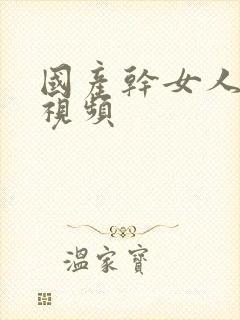 國產幹女人
視頻
溫家寶